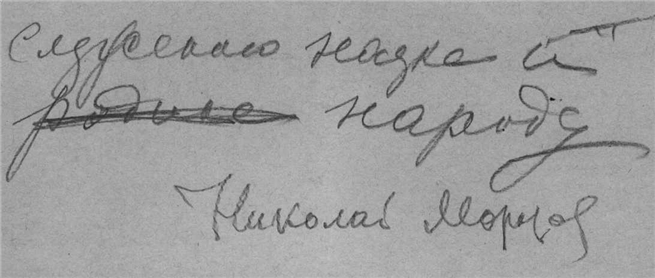 служению науке и
родине народу
Николай Морозов